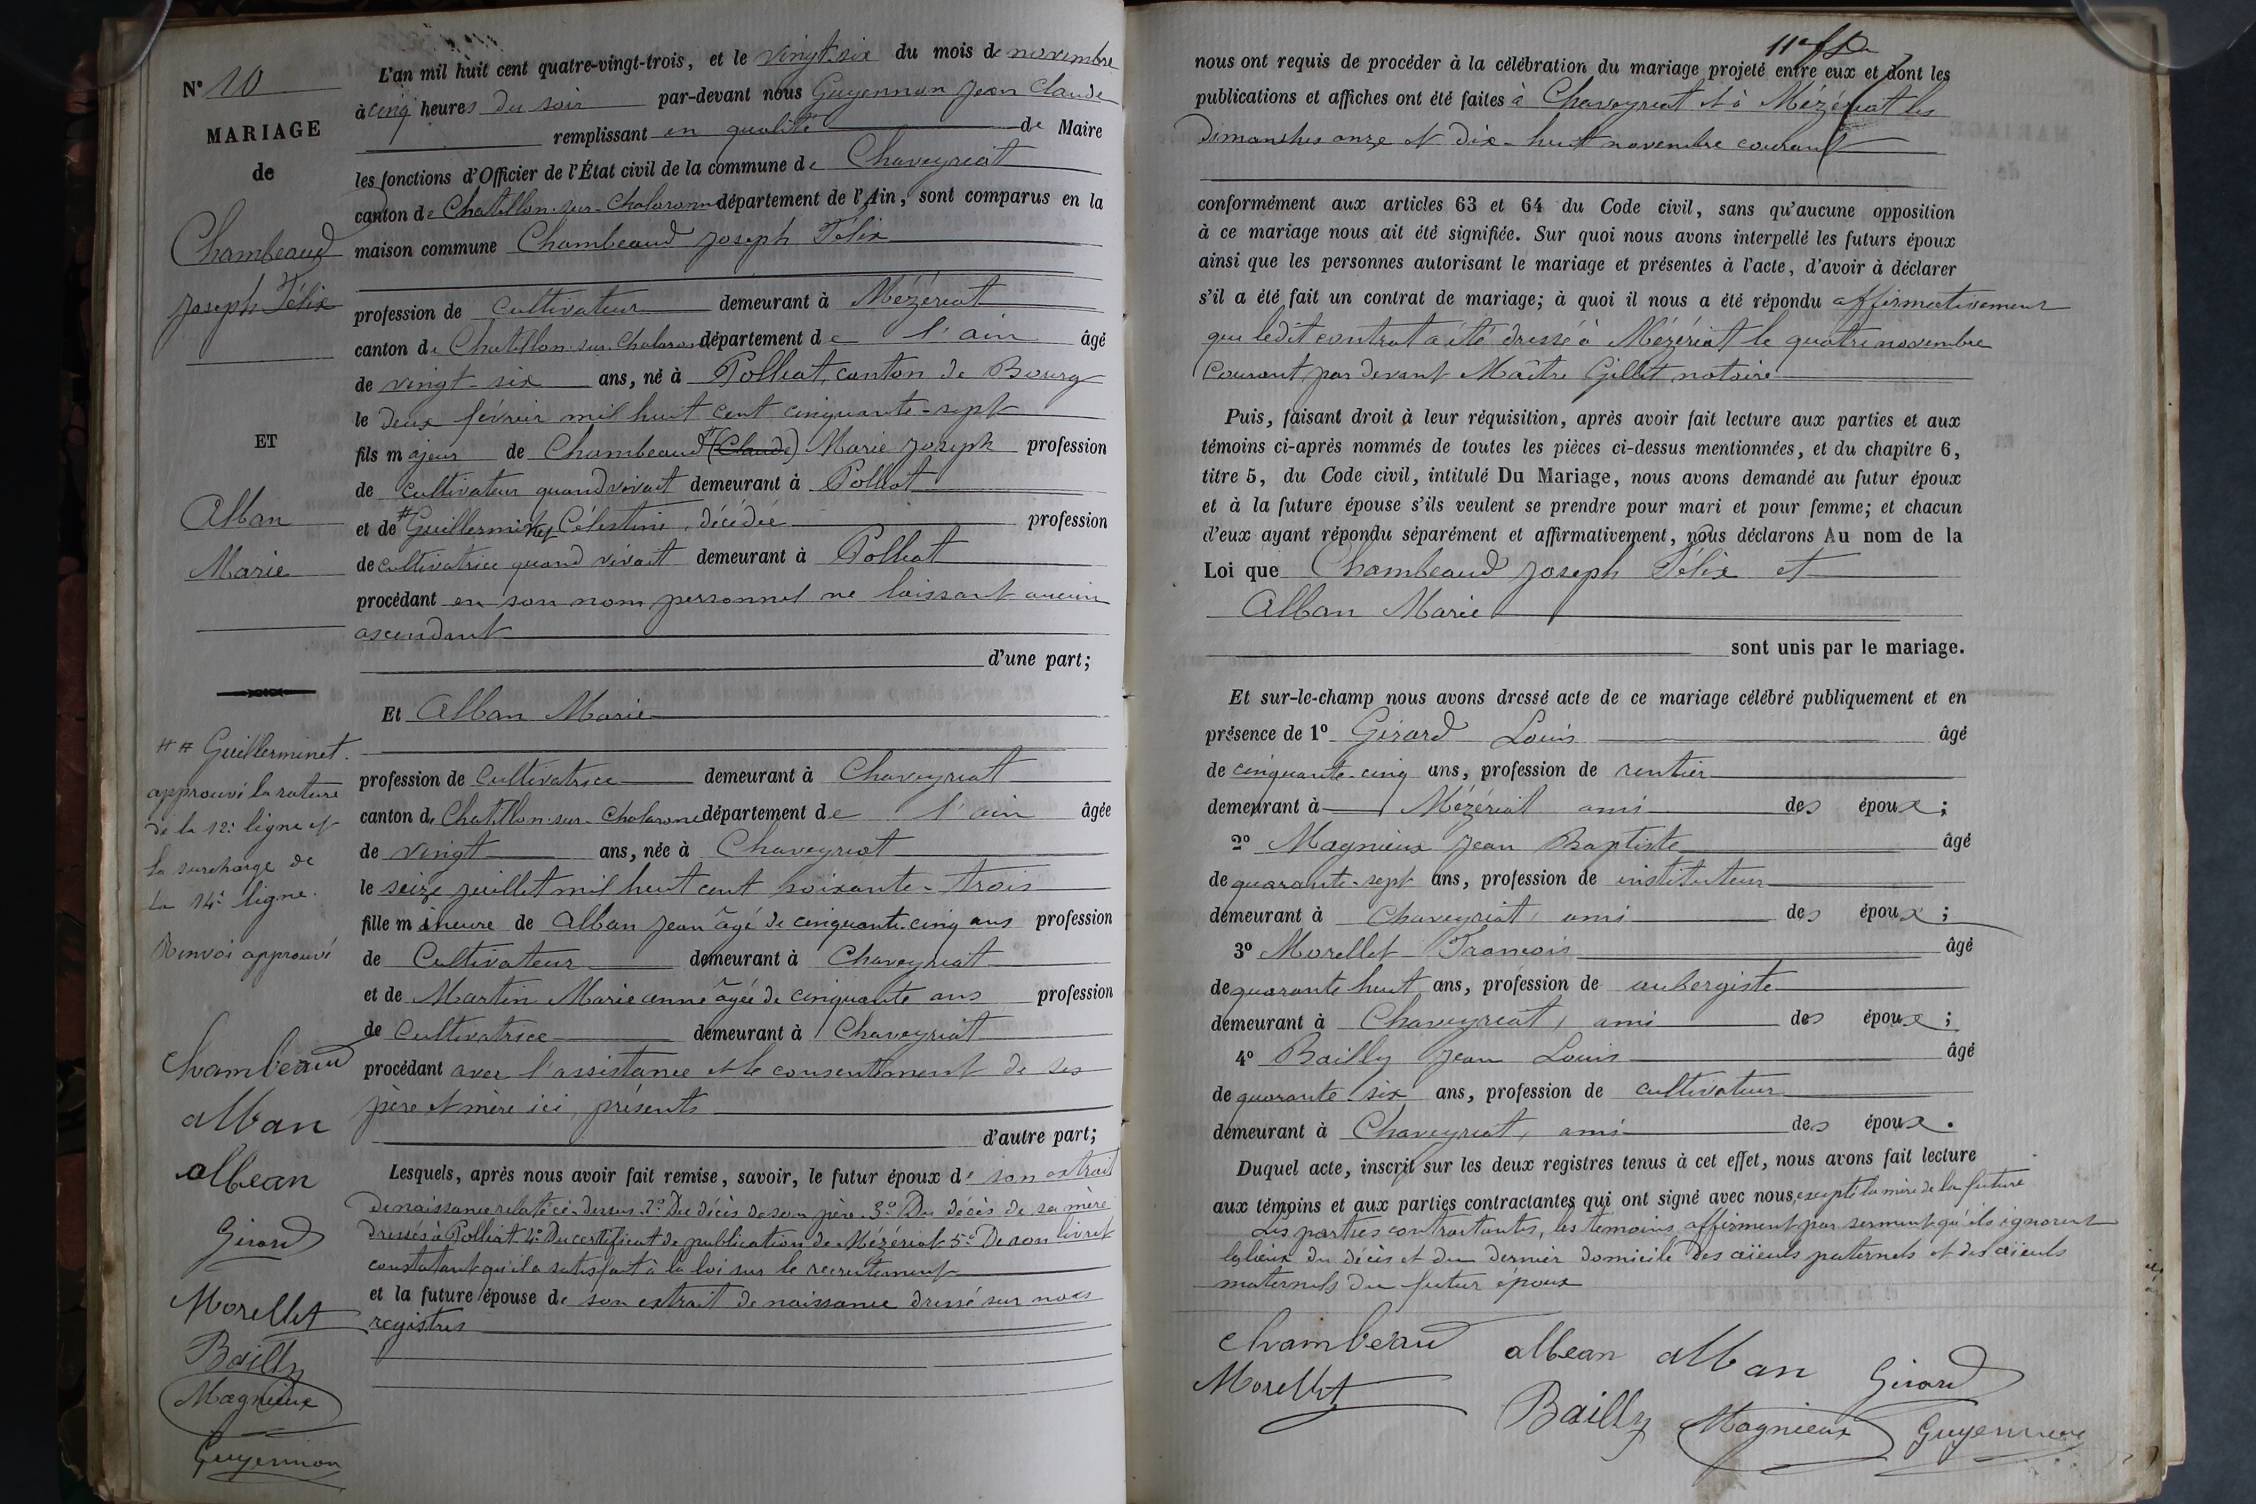 N° 10
MARIAGE
de
Chambeaud
Joseph Félix
ET
Alban
Marie
## Guillerminet.
approuvé la rature
de la 12e ligne et
la surcharge de
la 14e ligne.
Renvoi approuvé
Chambeaud
alban
albean
Girard
Morellet
Bailly
Magnieux
Guyennon
L'an mil huit cent quatre-vingt-trois, et le vingt-six du mois de novembre
à cinq heures du soir par-devant nous Guyennon Jean Claude
remplissant en qualité de Maire
les fonctions d'Officier de l'État civil de la commune de Chaveyriat
canton de Chatillon-sur-Chalaronne département de l'Ain, sont comparus en la
maison commune Chambeaud Joseph Félix
profession de cultivateur demeurant à Mézériat
canton de Chatillon-sur-Chalaronne département de l'ain âgé
de vingt-six ans, né à Polliat, canton de Bourg
le deux février mil huit cent cinquante-sept
fils majeur de Chambeaud # (Claude) Marie Joseph profession
de cultivateur quand vivait demeurant à Polliat
et de # Guillerminet Célestine, décédée profession
de cultivatrice quand vivait demeurant à Polliat
procédant en son nom personnel ne laissant aucun
ascendant
d'une part;
Et Alban Marie
profession de cultivatrice demeurant à Chaveyriat
canton de Chatillon-sur-Chalaronne département de l'ain âgée
de vingt ans, née à Chaveyriat
le seize juillet mil huit cent soixante-trois
fille mineure de Alban Jean âgé de cinquante-cinq ans profession
de Cultivateur demeurant à Chaveyriat
et de Martin Marie anne âgée de cinquante ans profession
de Cultivatrice demeurant à Chaveyriat
procédant avec l'assistance et le consentement de ses
père et mère ici présents
d'autre part;
Lesquels, après nous avoir fait remise, savoir, le futur époux de son extrait
de naissance relaté ci-dessus. 2° Du décès de son père. 3° Du décès de sa mère
dressés à Polliat 4° Du certificat de publication de Mézériat 5° De son livret
constatant qu'il a satisfait à la loi sur le recrutement
et la future épouse de son extrait de naissance dressé sur nos
registres
nous ont requis de procéder à la célébration du mariage projeté entre eux et dont les
publications et affiches ont été faites à Chaveyriat et à Mézériat les
dimanches onze et dix-huit novembre courant
conformément aux articles 63 et 64 du Code civil, sans qu'aucune opposition
à ce mariage nous ait été signifiée. Sur quoi nous avons interpellé les futurs époux
ainsi que les personnes autorisant le mariage et présentes à l'acte, d'avoir à déclarer
s'il a été fait un contrat de mariage; à quoi il nous a été répondu affirmativement
que ledit contrat a été dressé à Mézériat le quatre novembre
courant, par devant Maître Gillet notaire
Puis, faisant droit à leur réquisition, après avoir fait lecture aux parties et aux
témoins ci-après nommés de toutes les pièces ci-dessus mentionnées, et du chapitre 6,
titre 5, du Code civil, intitulé Du Mariage, nous avons demandé au futur époux
et à la future épouse s'ils veulent se prendre pour mari et pour femme; et chacun
d'eux ayant répondu séparément et affirmativement, nous déclarons Au nom de la
Loi que Chambeaud Joseph Félix et
Alban Marie
sont unis par le mariage.
Et sur-le-champ nous avons dressé acte de ce mariage célébré publiquement et en
présence de 1° Girard Louis âgé
de cinquante-cinq ans, profession de rentier
demeurant à Mézériat ami des époux;
2° Magnieux Jean Baptiste âgé
de quarante-sept ans, profession de instituteur
demeurant à Chaveyriat, ami des époux;
3° Morellet François âgé
de quarante huit ans, profession de aubergiste
demeurant à Chaveyriat, ami des époux;
4° Bailly Jean Louis âgé
de quarante-six ans, profession de cultivateur
demeurant à Chaveyriat, ami des époux.
Duquel acte, inscrit sur les deux registres tenus à cet effet, nous avons fait lecture
aux témoins et aux parties contractantes qui ont signé avec nous, excepté la mère de la future
Les parties contractantes, les témoins affirment par serment qu'ils ignorent
le lieu du décès et du dernier domicile des aïeuls paternels et des aïeuls
maternels du futur époux
Chambeaud albean alban Girard
Morellet Bailly Magnieux Guyennon